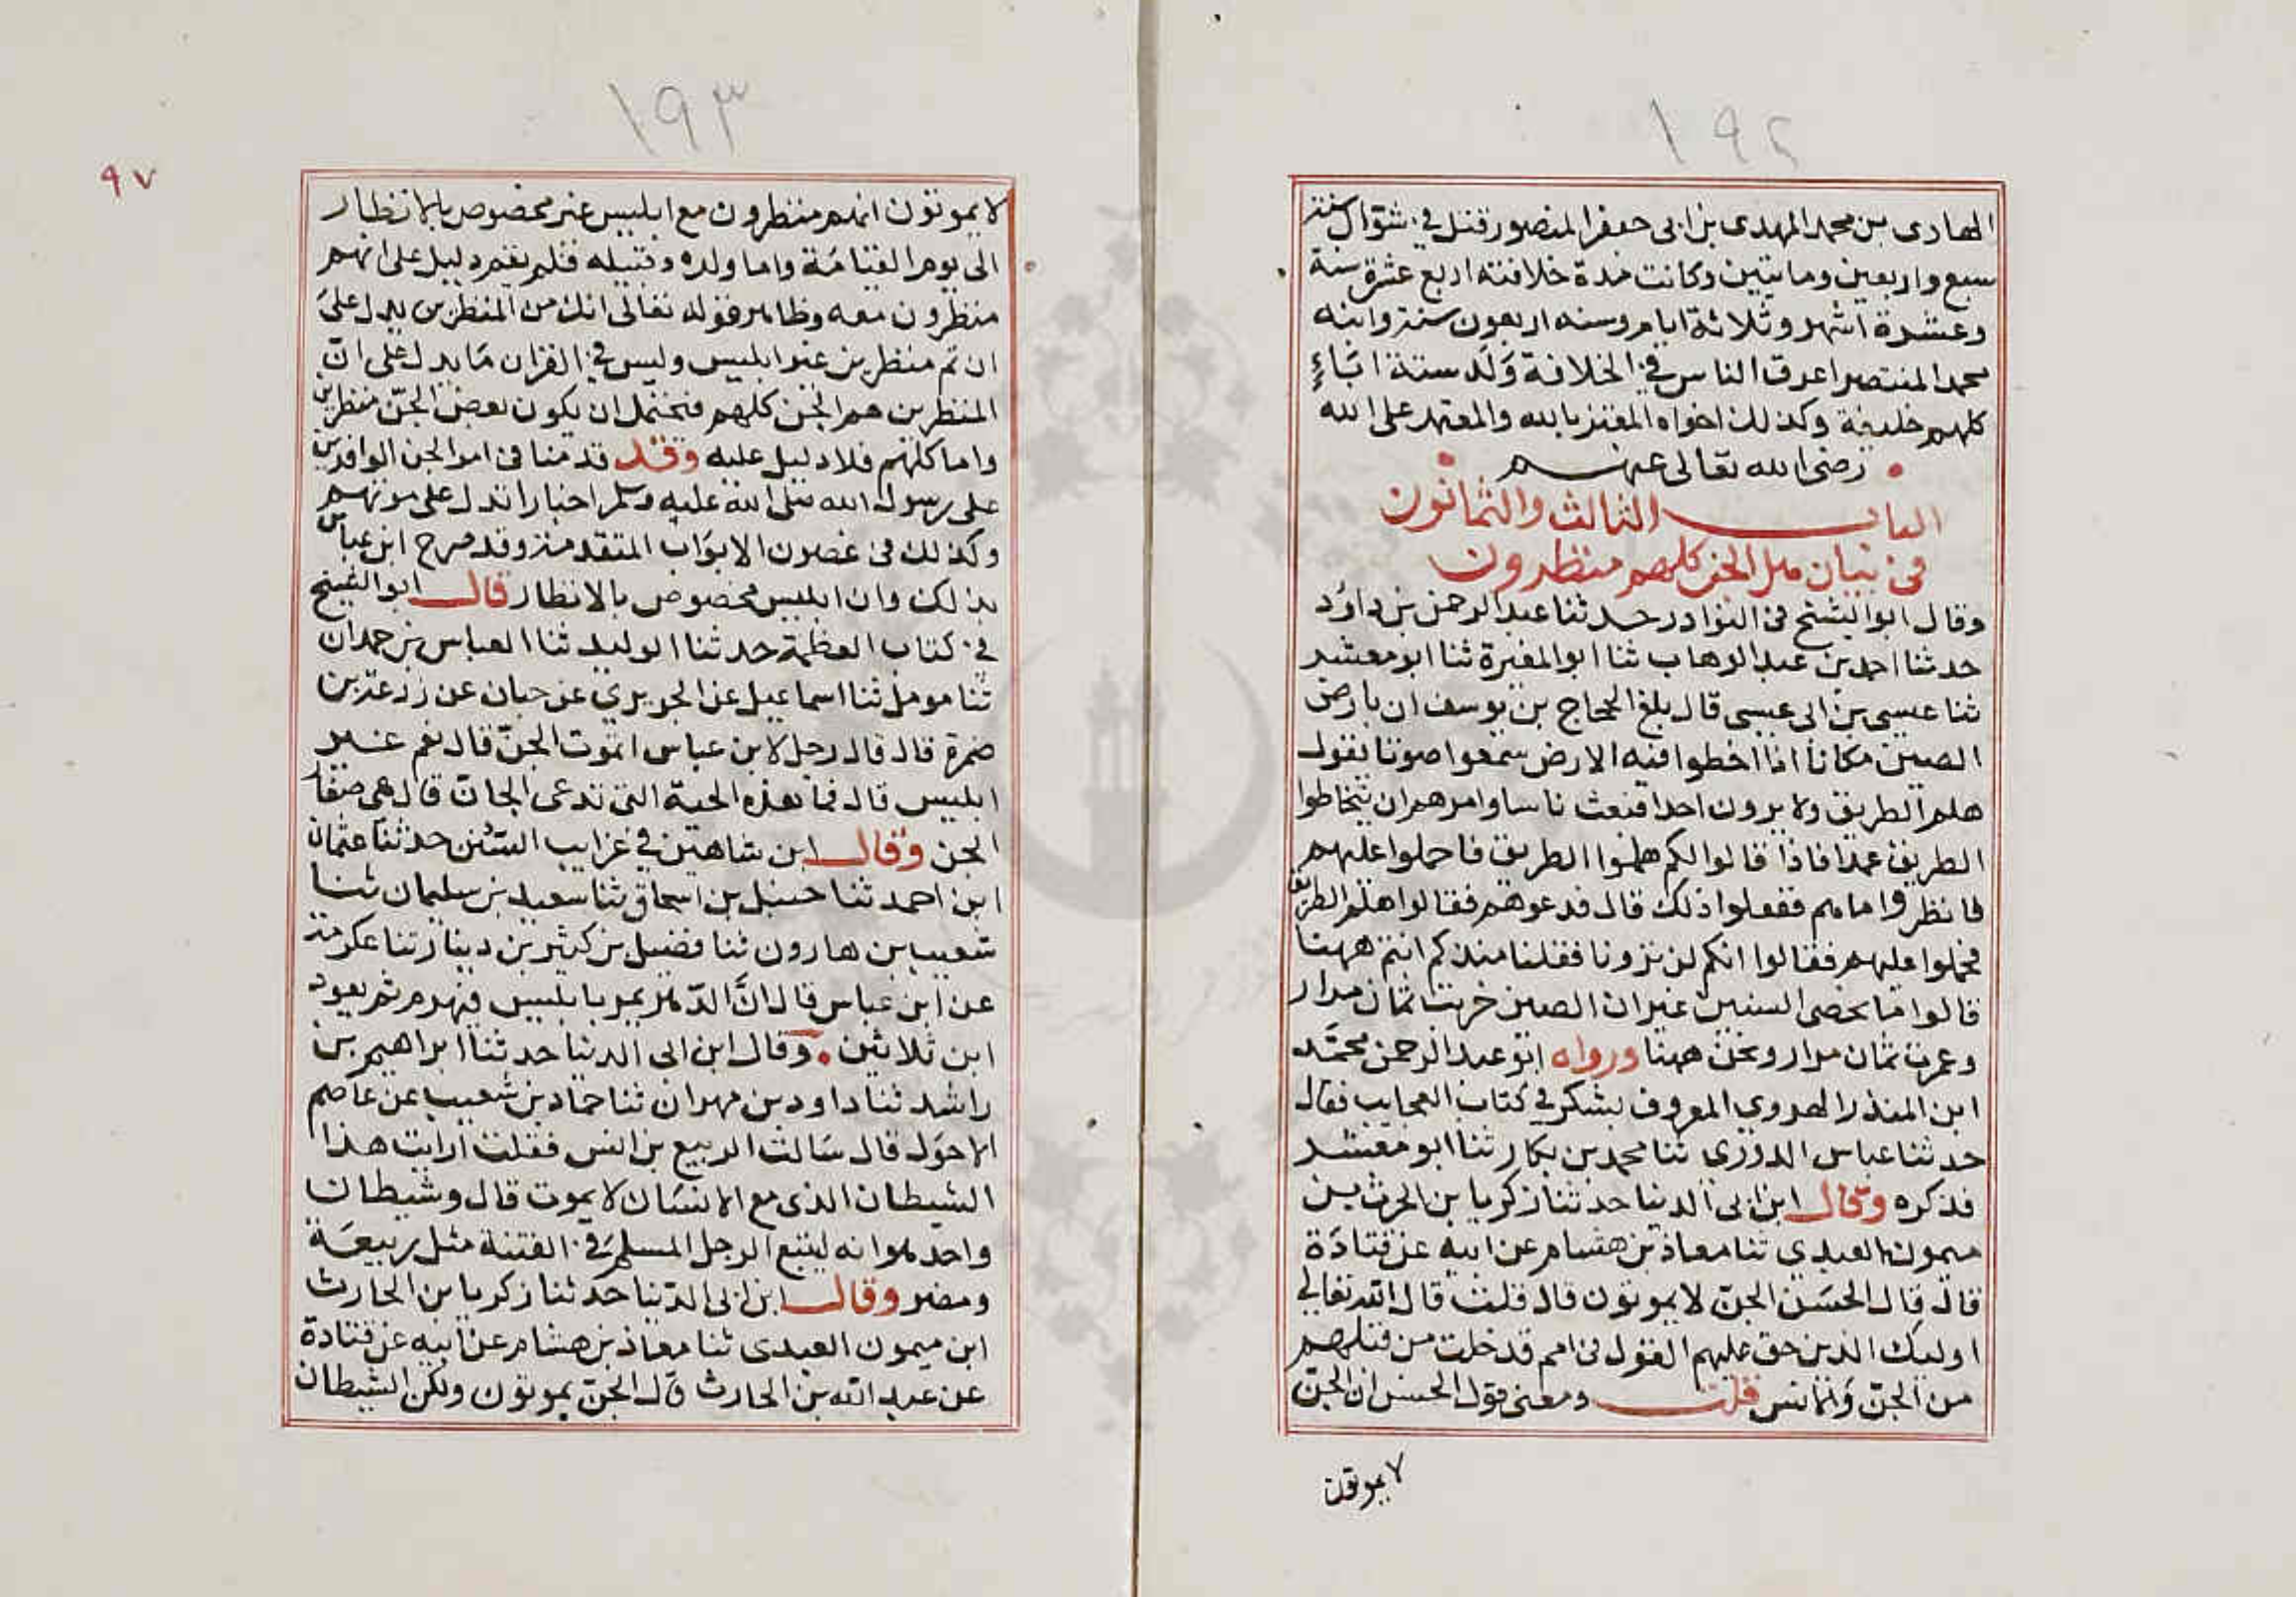 ١٩٢
الهادى بن محمد المهدى بن ابى جعفر المنصور قتل فى شوال سنة
سبع واربعين ومايتين وكانت مدة خلافته اربع عشرة سنة
وعشرة اشهر وثلاثة ايام وسنه اربعون سنة وابنه
محمد المنتصر اعرق الناس فى الخلافة ولد ستة اباء
كلهم خليفة وكذلك اخواه المعتز بالله والمعتمد على الله
رضى الله تعالى عنهم
الباب الثالث والثمانون
فى بيان هل الجن كلهم منظرون
وقال ابو الشيخ فى النوادر حدثنا عبد الرحمن بن داود
حدثنا احمد بن عبد الوهاب ثنا ابو المغيرة ثنا ابو معشر
ثنا عيسى بن ابى عيسى قال بلغ الحجاج بن يوسف ان بارض
الصين مكانا اذا اخطوا فيه الارض سمعوا صوتا يقول
هلم الطريق ولا يرون احدا فبعث ناسا وامرهم ان يتخاطوا
الطريق عمدا فاذا قالوا لكم هلموا الطريق فاحملوا عليهم
فانظروا ما هم ففعلوا ذلك قال فدعوهم فقالوا هلم الطريق
فحملوا عليهم فقالوا انكم لن ترونا فقلنا منذ كم انتم ههنا
قالوا ما نحصى السنين غير ان الصين خربت ثمان مرار
وعمرت ثمان مرار ونحن ههنا ورواه ابو عبد الرحمن محمد
ابن المنذر الهروي المعروف بشكر فى كتاب العجايب فقال
حدثنا عباس الدوري ثنا محمد بن بكار ثنا ابو معشر
فذكره وقال ابن ابى الدنيا حدثنا زكريا بن الحرث بن
ميمون العبدى ثنا معاذ بن هشام عن ابيه عن قتادة
قال قال الحسن الجن لا يموتون قال قلت قال الله تعالى
اوليك الذين حق عليهم القول فى امم قد خلت من قبلهم
من الجن والانس قلت ومعنى قول الحسن ان الجن
لا يموتون
١٩٣
٩٧
لا يموتون انهم منتظرون مع ابليس غير مخصوص بالانظار
الى يوم القيامة واما ولده وقبيله فلم يقم دليل على انهم
منظرون معه وظاهر قوله تعالى انك من المنظرين يدل على
ان ثم منظرين غير ابليس وليس فى القران ما يدل على ان
المنظرين هم الجن كلهم فيحتمل ان يكون بعض الجن منظرين
واما كلهم فلا دليل عليه وقد قدمنا فى امر الجن الوافدين
على رسول الله صلى الله عليه وسلم اخبارا تدل على موتهم
وكذلك فى غصون الابواب المتقدمة وقد صرح ابن عباس
بذلك وان ابليس مخصوص بالانظار قال ابو الشيخ
فى كتاب العظمة حدثنا الوليد ثنا العباس بن حمدان
ثنا مومل ثنا اسماعيل عن الجريري عن حبان عن زرعة بن
ضمرة قال قال رجل لابن عباس اتموت الجن قال نعم غير
ابليس قال فما هذه الحية التى تدعى الجان قال هى صغار
الجن وقال ابن شاهين فى غرايب السنن حدثنا عثمان
ابن احمد ثنا حنبل بن اسحاق ثنا سعيد بن سليمان ثنا
شعيب بن هارون ثنا فضيل بن كثير بن دينار ثنا عكرمة
عن ابن عباس قال ان الدهر يمر بابليس فيهرم ثم يعود
ابن ثلاثين وقال ابن ابى الدنيا حدثنا ابراهيم بن
راشد ثنا داود بن مهران ثنا حماد بن شعيب عن عاصم
الاحول قال سالت الربيع بن انس فقلت ارايت هذا
الشيطان الذى مع الانسان لا يموت قال وشيطان
واحد هو انه ليتبع الرجل المسلم فى الفتنة مثل ربيعة
ومضر وقال ابن ابى الدنيا حدثنا زكريا بن الحارث
ابن ميمون العبدى ثنا معاذ بن هشام عن ابيه عن قتادة
عن عبد الله بن الحارث قال الجن يموتون ولكن الشيطان